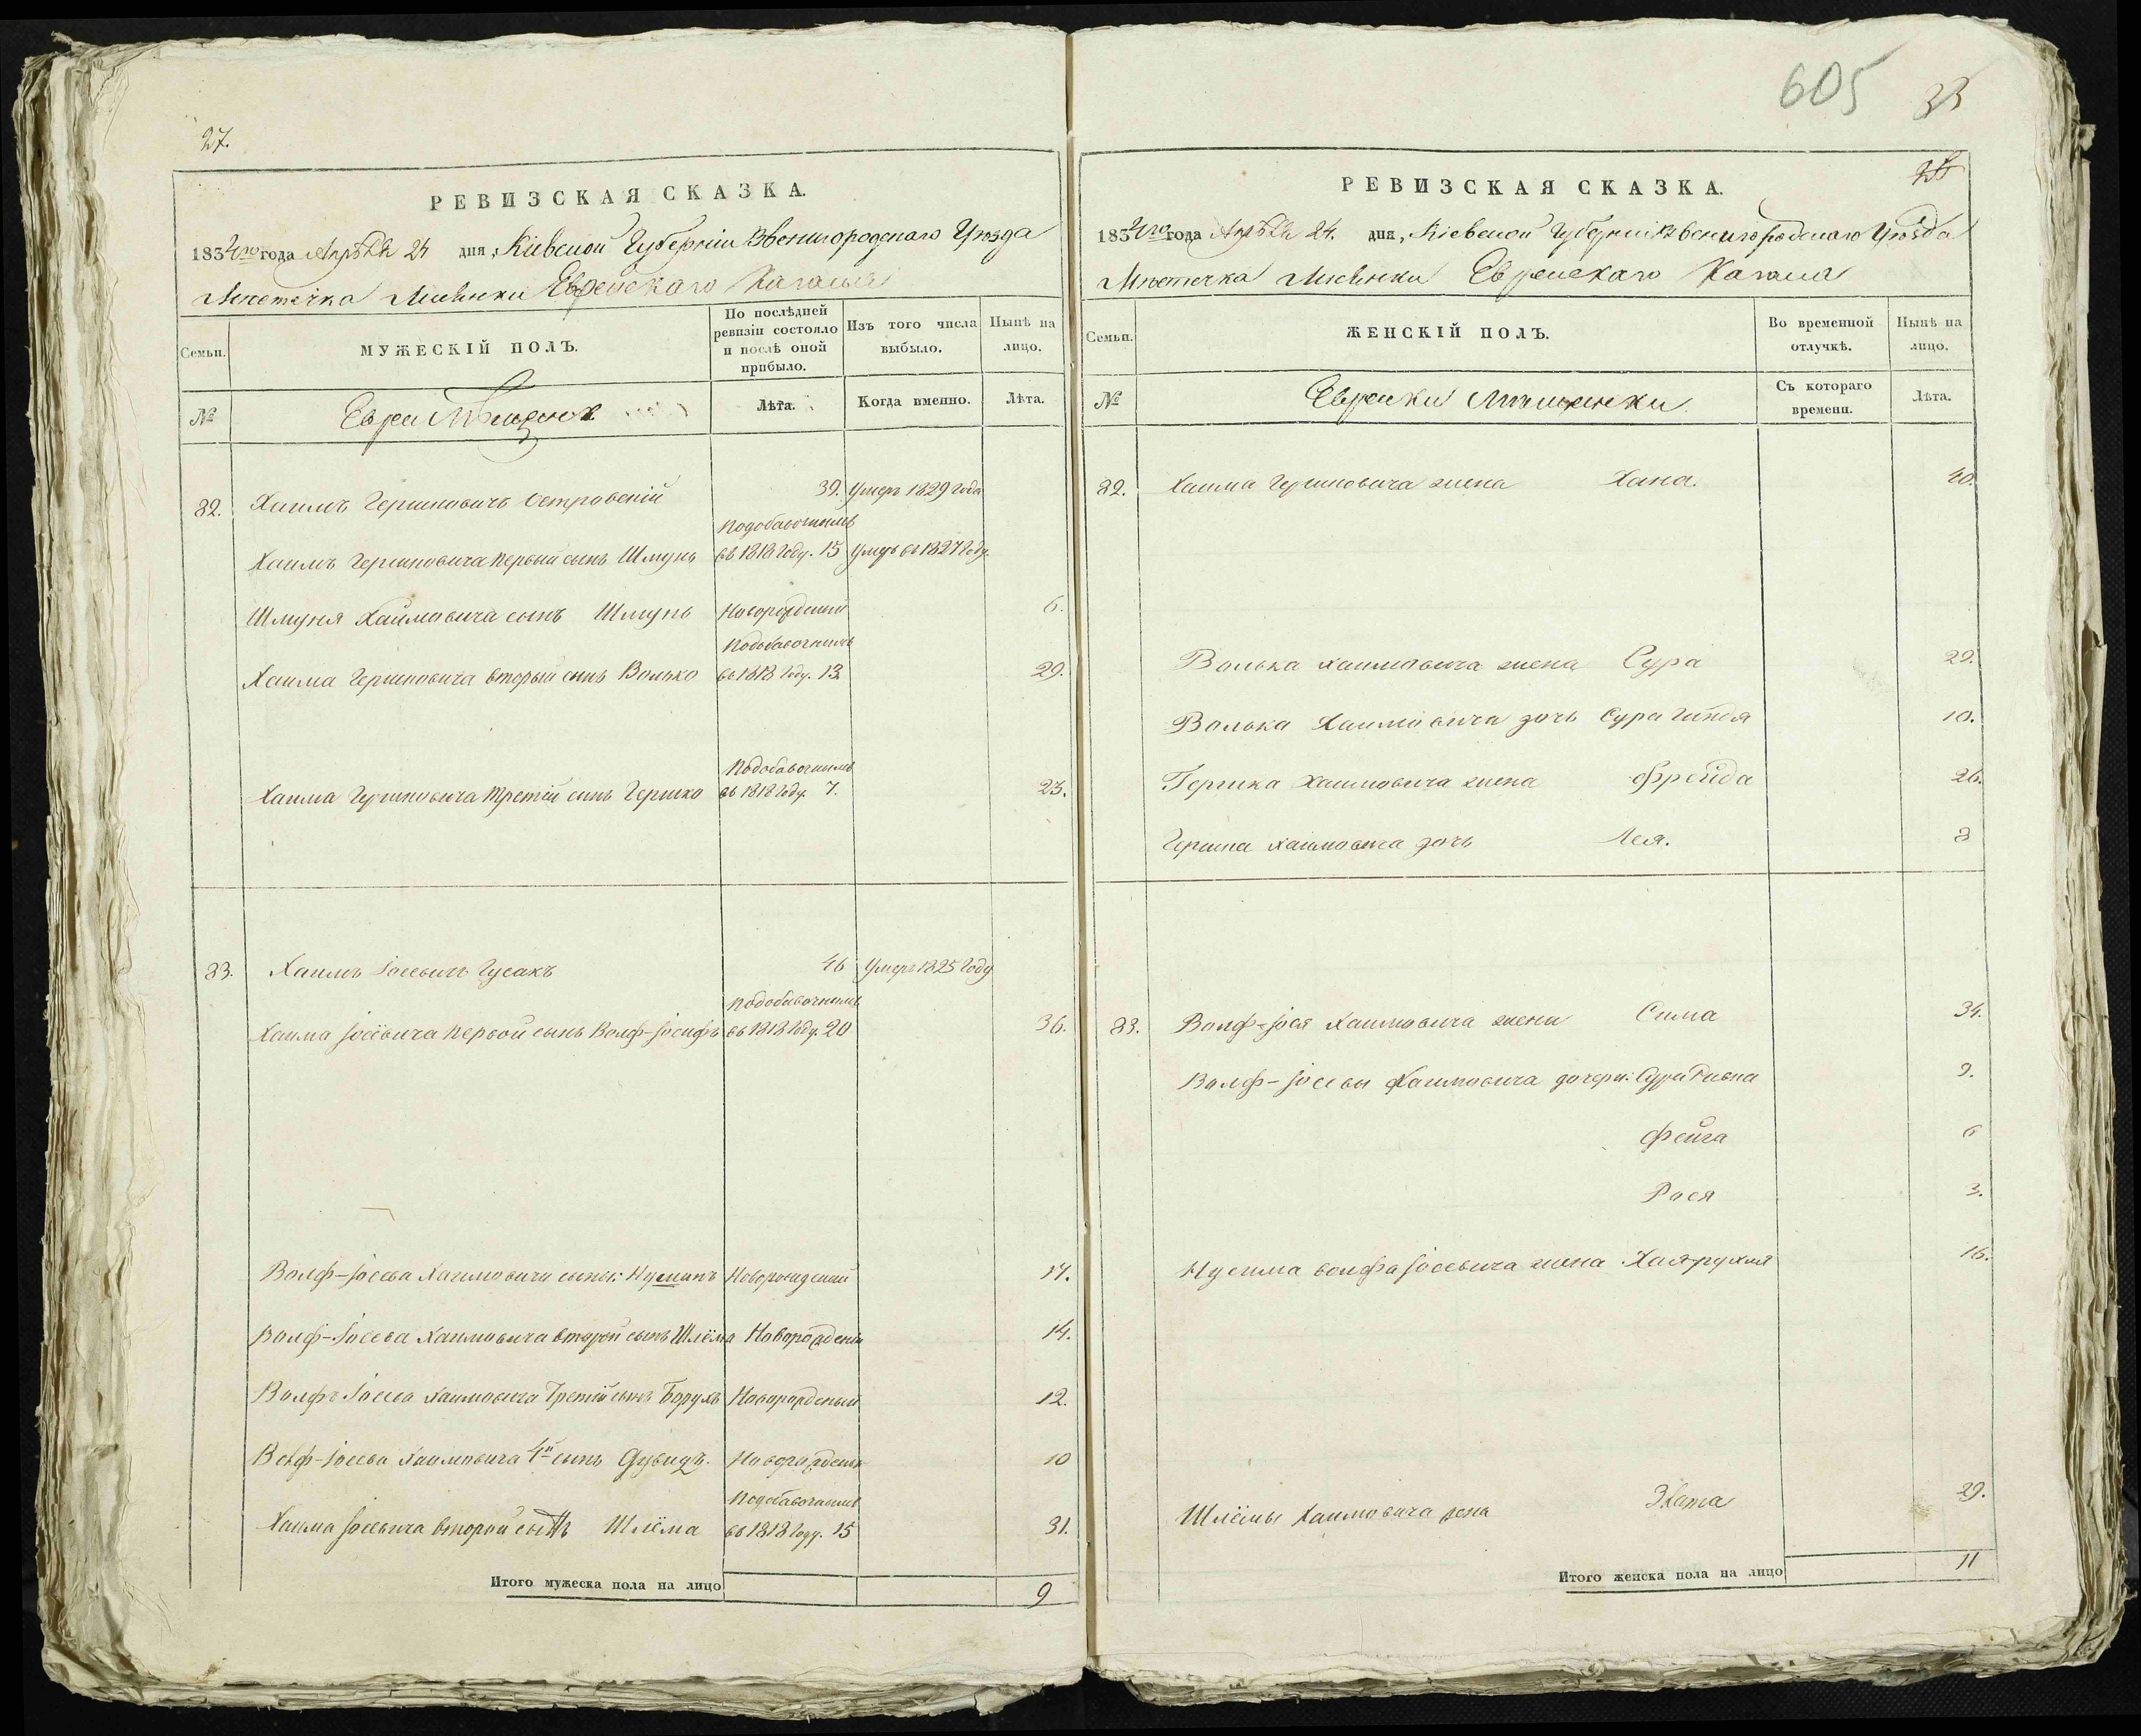 27.
РЕВИЗСКАЯ СКАЗКА.
1834го года Апрѣля 24 дня, Кіевской Губерніи Звенигородскаго Уѣзда
Мѣстечка Лисянки Еврейскаго Кагала
Семьи.
МУЖЕСКІЙ ПОЛЪ.
По послѣдней ревизіи состояло и послѣ оной прибыло.
Изъ того числа выбыло.
Нынѣ на лицо.
№
Евреи Мѣщане
Лѣта.
Когда именно.
Лѣта.
82. Хаимъ Гершковичъ Островскій 39. Умеръ 1829 года
Подобавочнымъ
Хаимъ Гершковича первый сынъ Шмунь въ 1818 году. 15 Умеръ въ 1827 году.
Шмуня Хаймовича сынъ Шмунь Новорожденный 6.
Подобавочнымъ
Хаима Гершковича вторый сынъ Волько въ 1818 году. 13. 29.
Подобавочнымъ
Хаима Гершковича третій сынъ Гершко въ 1818 году. 7. 23.
83. Хаимъ Іосевичъ Гусакъ 46 Умеръ 1825 году
Подобавочнымъ
Хаима Іосевича первой сынъ Волф-Іосифъ въ 1818 году. 20 36.
Волф-Іосева Хаимовича сыны: Нусимъ Новорожденый 17.
Волф-Іосева Хаимовича второй сынъ Шлёма Новорожденый 14.
Волф-Іосева Хаимовича Третій сынъ Борухъ Новорожденый 12.
Волф-Іосева Хаимовича 4й сынъ Дувидъ. Новорожденый 10
Подобавочнымъ
Хаима Іосевича второй сынъ Шлёма въ 1818 году. 15 31.
Итого мужеска пола на лицо 9
605
РЕВИЗСКАЯ СКАЗКА.
1834го года Апрѣля 24. дня, Кіевской Губерніи Звенигородскаго Уѣзда
Мѣстечка Лисянки Еврейскаго Кагала
Семьи.
ЖЕНСКІЙ ПОЛЪ.
Во временной отлучкѣ.
Нынѣ на лицо.
№
Еврейки Мѣщанки.
Съ котораго времени.
Лѣта.
82. Хаима Гершковича жена Хана. 40.
Волька Хаимовича жена Сура 29.
Волька Хаимовича дочь Сура Гиндя 10.
Гершка Хаимовича жена Фрейда 26.
Гершка Хаимовича дочь Лея. 8
83. Волф-Іося Хаимовича жена Сима 34.
Волф-Іосевы Хаимовича дочери: Сура Гивна 9.
Фейга 6
Рося 3.
Нусима Волфа Іосевича жена Хая-рухля 16.
Шлёмы Хаимовича жена Злата 29.
Итого женска пола на лицо 11